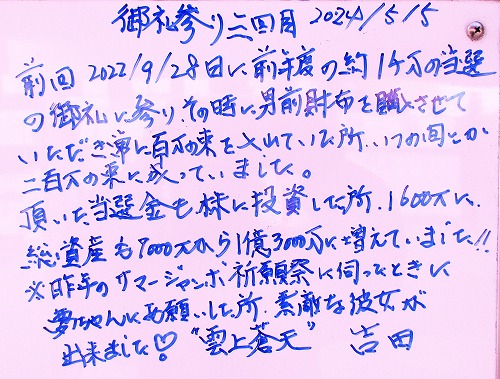 御礼参り三回目 2024/5/5
前回 2022/9/28日に前年度の約1千万の当選
の御礼に参り その時に男前財布を購入させて
いただき常に百万の束を入れていた所、いつの間にか
二百万の束に成っていました。
頂いた当選金も株に投資した所、1600万に、
総資産も7000万から1億3000万に増えていました!!
※昨年のサマージャンボ祈願祭に伺ったときに
夢ちゃんにお願いした所 素敵な彼女が
出来ました♡ "雲上蒼天" 吉田